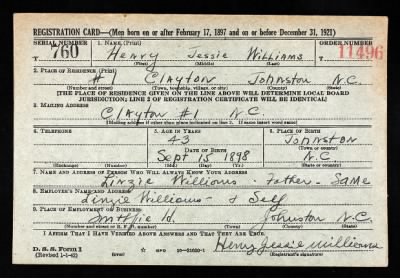 REGISTRATION CARD—(Men born on or after February 17, 1897 and on or before December 31, 1921)
SERIAL NUMBER 1. NAME (Print) ORDER NUMBER
T 760 Henry Jessie Williams T 11496
(First) (Middle) (Last)
2. PLACE OF RESIDENCE (Print)
#1 Clayton Johnston N.C.
(Number and street) (Town, township, village, or city) (County) (State)
[THE PLACE OF RESIDENCE GIVEN ON THE LINE ABOVE WILL DETERMINE LOCAL BOARD
JURISDICTION; LINE 2 OF REGISTRATION CERTIFICATE WILL BE IDENTICAL]
3. MAILING ADDRESS
Clayton #1 N.C.
[Mailing address if other than place indicated on line 2. If same insert word same]
4. TELEPHONE 5. AGE IN YEARS 6. PLACE OF BIRTH
43 Johnston
DATE OF BIRTH (Town or county)
Sept 15 1898 N.C.
(Exchange) (Number) (Mo.) (Day) (Yr.) (State or country)
7. NAME AND ADDRESS OF PERSON WHO WILL ALWAYS KNOW YOUR ADDRESS
Linzie Williams - Father - Same
8. EMPLOYER'S NAME AND ADDRESS
Linzie Williams - & Self
9. PLACE OF EMPLOYMENT OR BUSINESS
Johnston N.C.
(Number and street or R. F. D. number) (Town) (County) (State)
I AFFIRM THAT I HAVE VERIFIED ABOVE ANSWERS AND THAT THEY ARE TRUE.
D. S. S. Form 1
(Revised 1-1-42) GPO 16—21630-1 Henry Jessie Williams
(Registrant's signature)